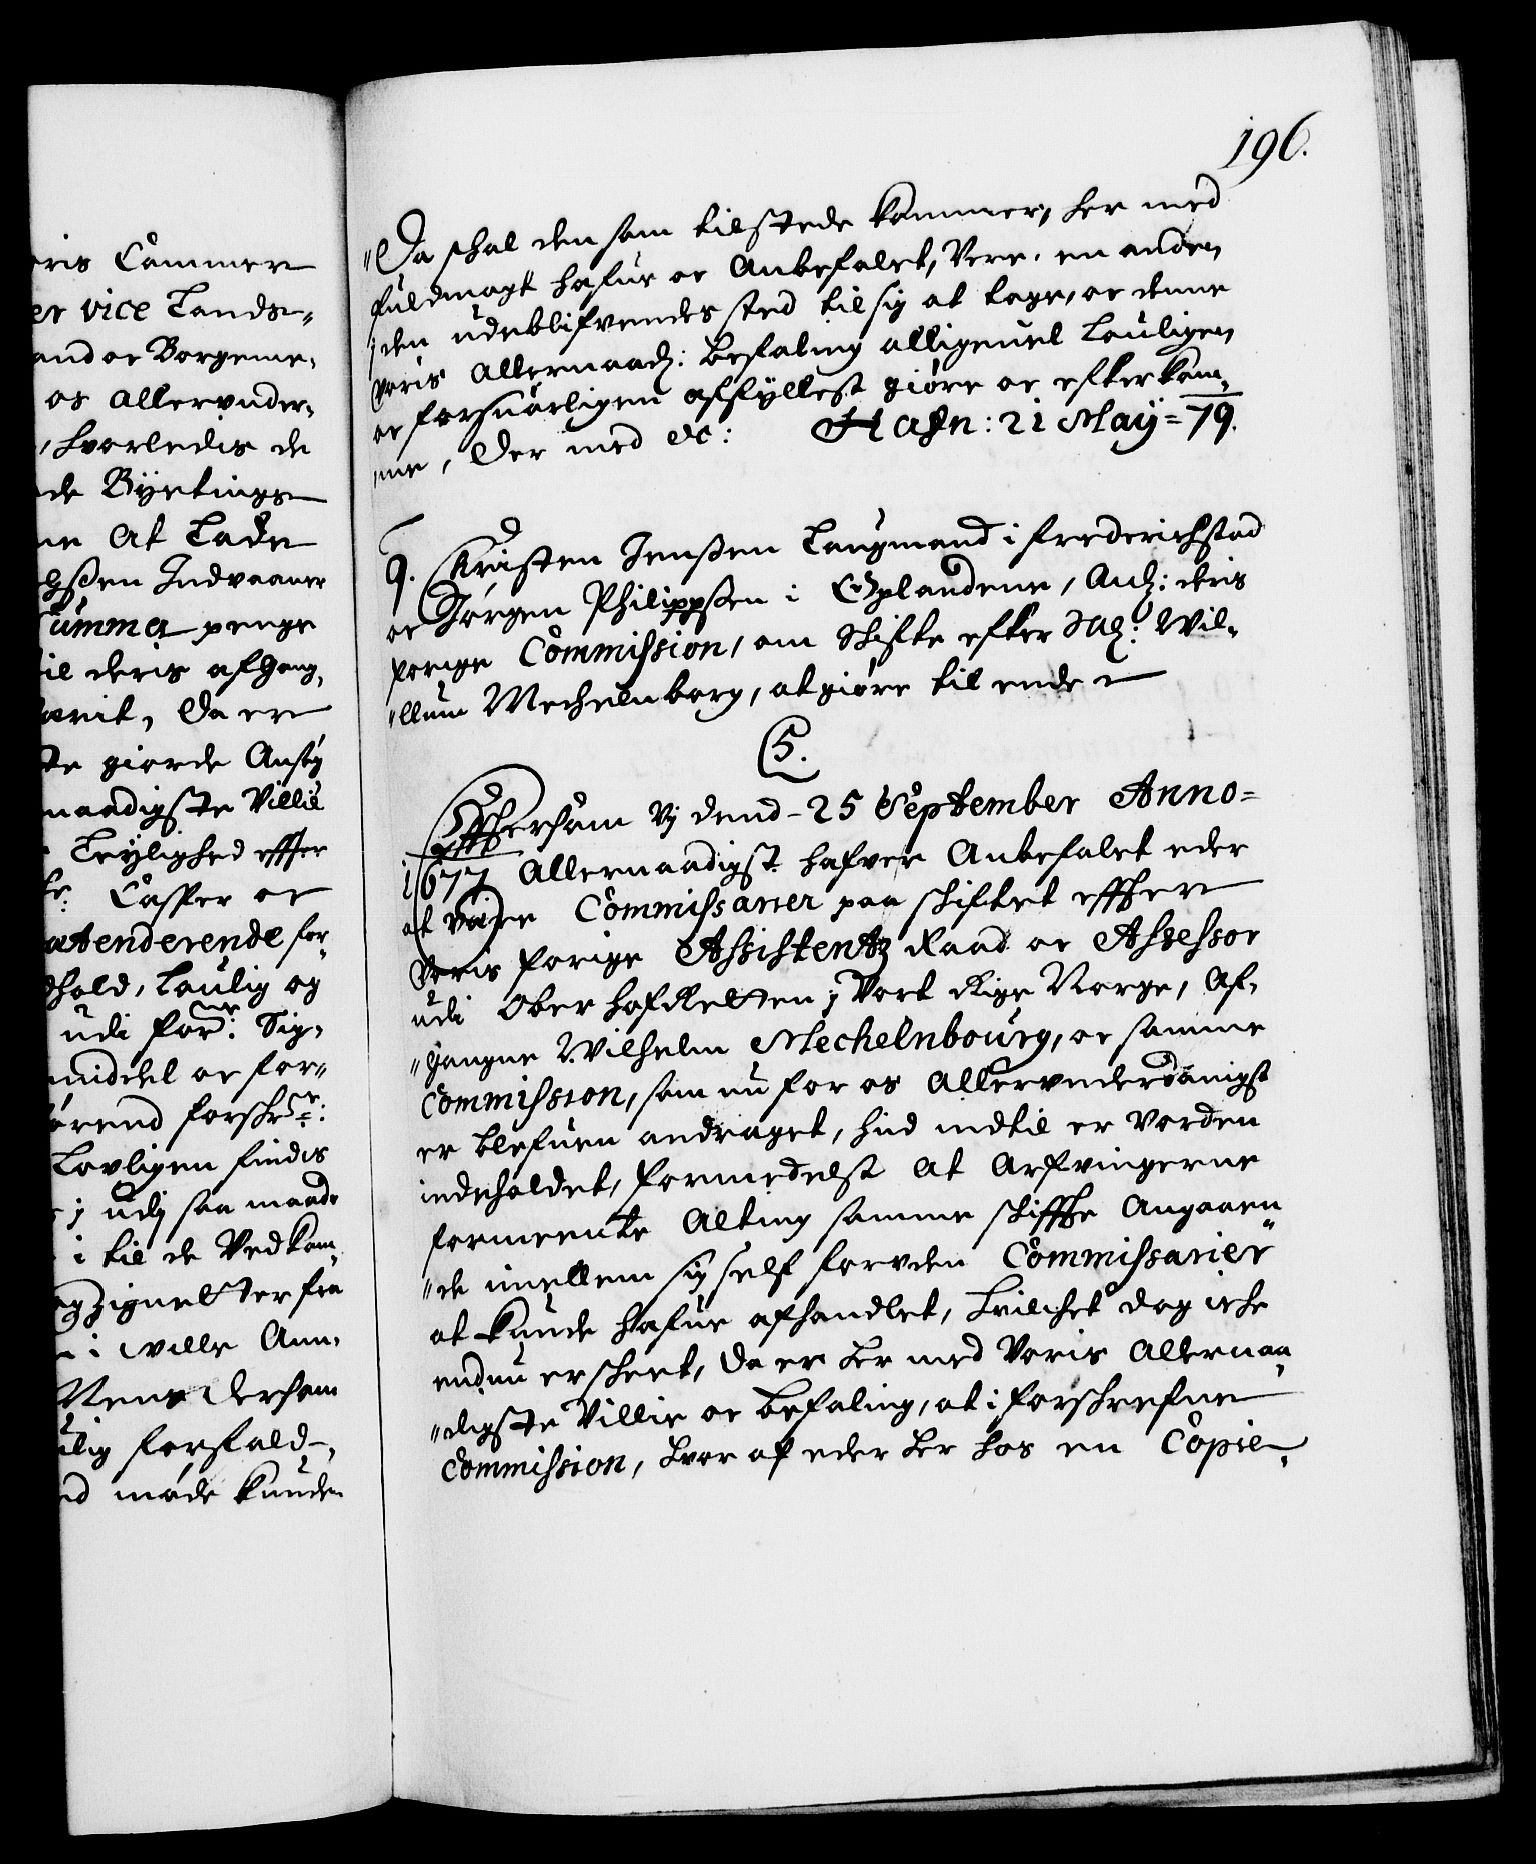 oris Cammer
er vice Lands-
and oc Borgeme-
os allervnder-
, hvorledis de
de Byetinge
ne at Lade
lssen Indvaaner
Summa penge
til deris afgang-
værit, da er
te giorde Ansøg
naadigste Villie
Leylighed effter
Casper oc
attenderende for-
hold, loulig og
udi for.ne Sig-
middel oc for-
ørend forschr.ne:
Lovligen findis
j udj saa maade
i til de Vedkom-
og zignetter fra
i i wille Ann-
Mens dersom
lig forfald-
ed møde kunde
196.
Da schal den som tilstede kommer, her med
fuldmagt hafue oc Anbefalet, Vere en anden
i den udeblifvendes sted til sig at tage, oc denne
Voris Allernaad: befaling alligeuel louligen
oc forsuarligen affyllest giøre oc efterkom-
me, Der med ec: Hafn: 21 May = 79.
9. Kristen Jenssen Laugmand i Frederichstad
oc Jørgen Philippssen i Oplandene, Anl: deris
forige Commission, om Skifte efter Sal: Wil-
lum Mechelnborg, at giøre til ende
S.
Efftersom Vj dend 25 September Anno
1677 Allernaadigst hafver Anbefalet eder
at være Commissarier paa skiftet effter
Voris forige Assistentz Raad oc Assessor
udi Ober hof Retten j Vort Rige Norge, Af-
gangne Wilhelm Mechelnbourg, oc samme
Commission, som nu for os Allervnderdanigst
er blefuen andraget, hid indtil er vorden
indeholdet, formedelst at Arfvingerne
formeente Alting samme skiffte Angaaen-
de imellem sig self forvden Commissarier
at kunde hafue afhandlet, hvilchet dog iche
endnu er scheet, Da er her med Voris Allernaa-
digste Villie oc befaling, at i forschrefne
Commission, hvor af eder her hos en Copie